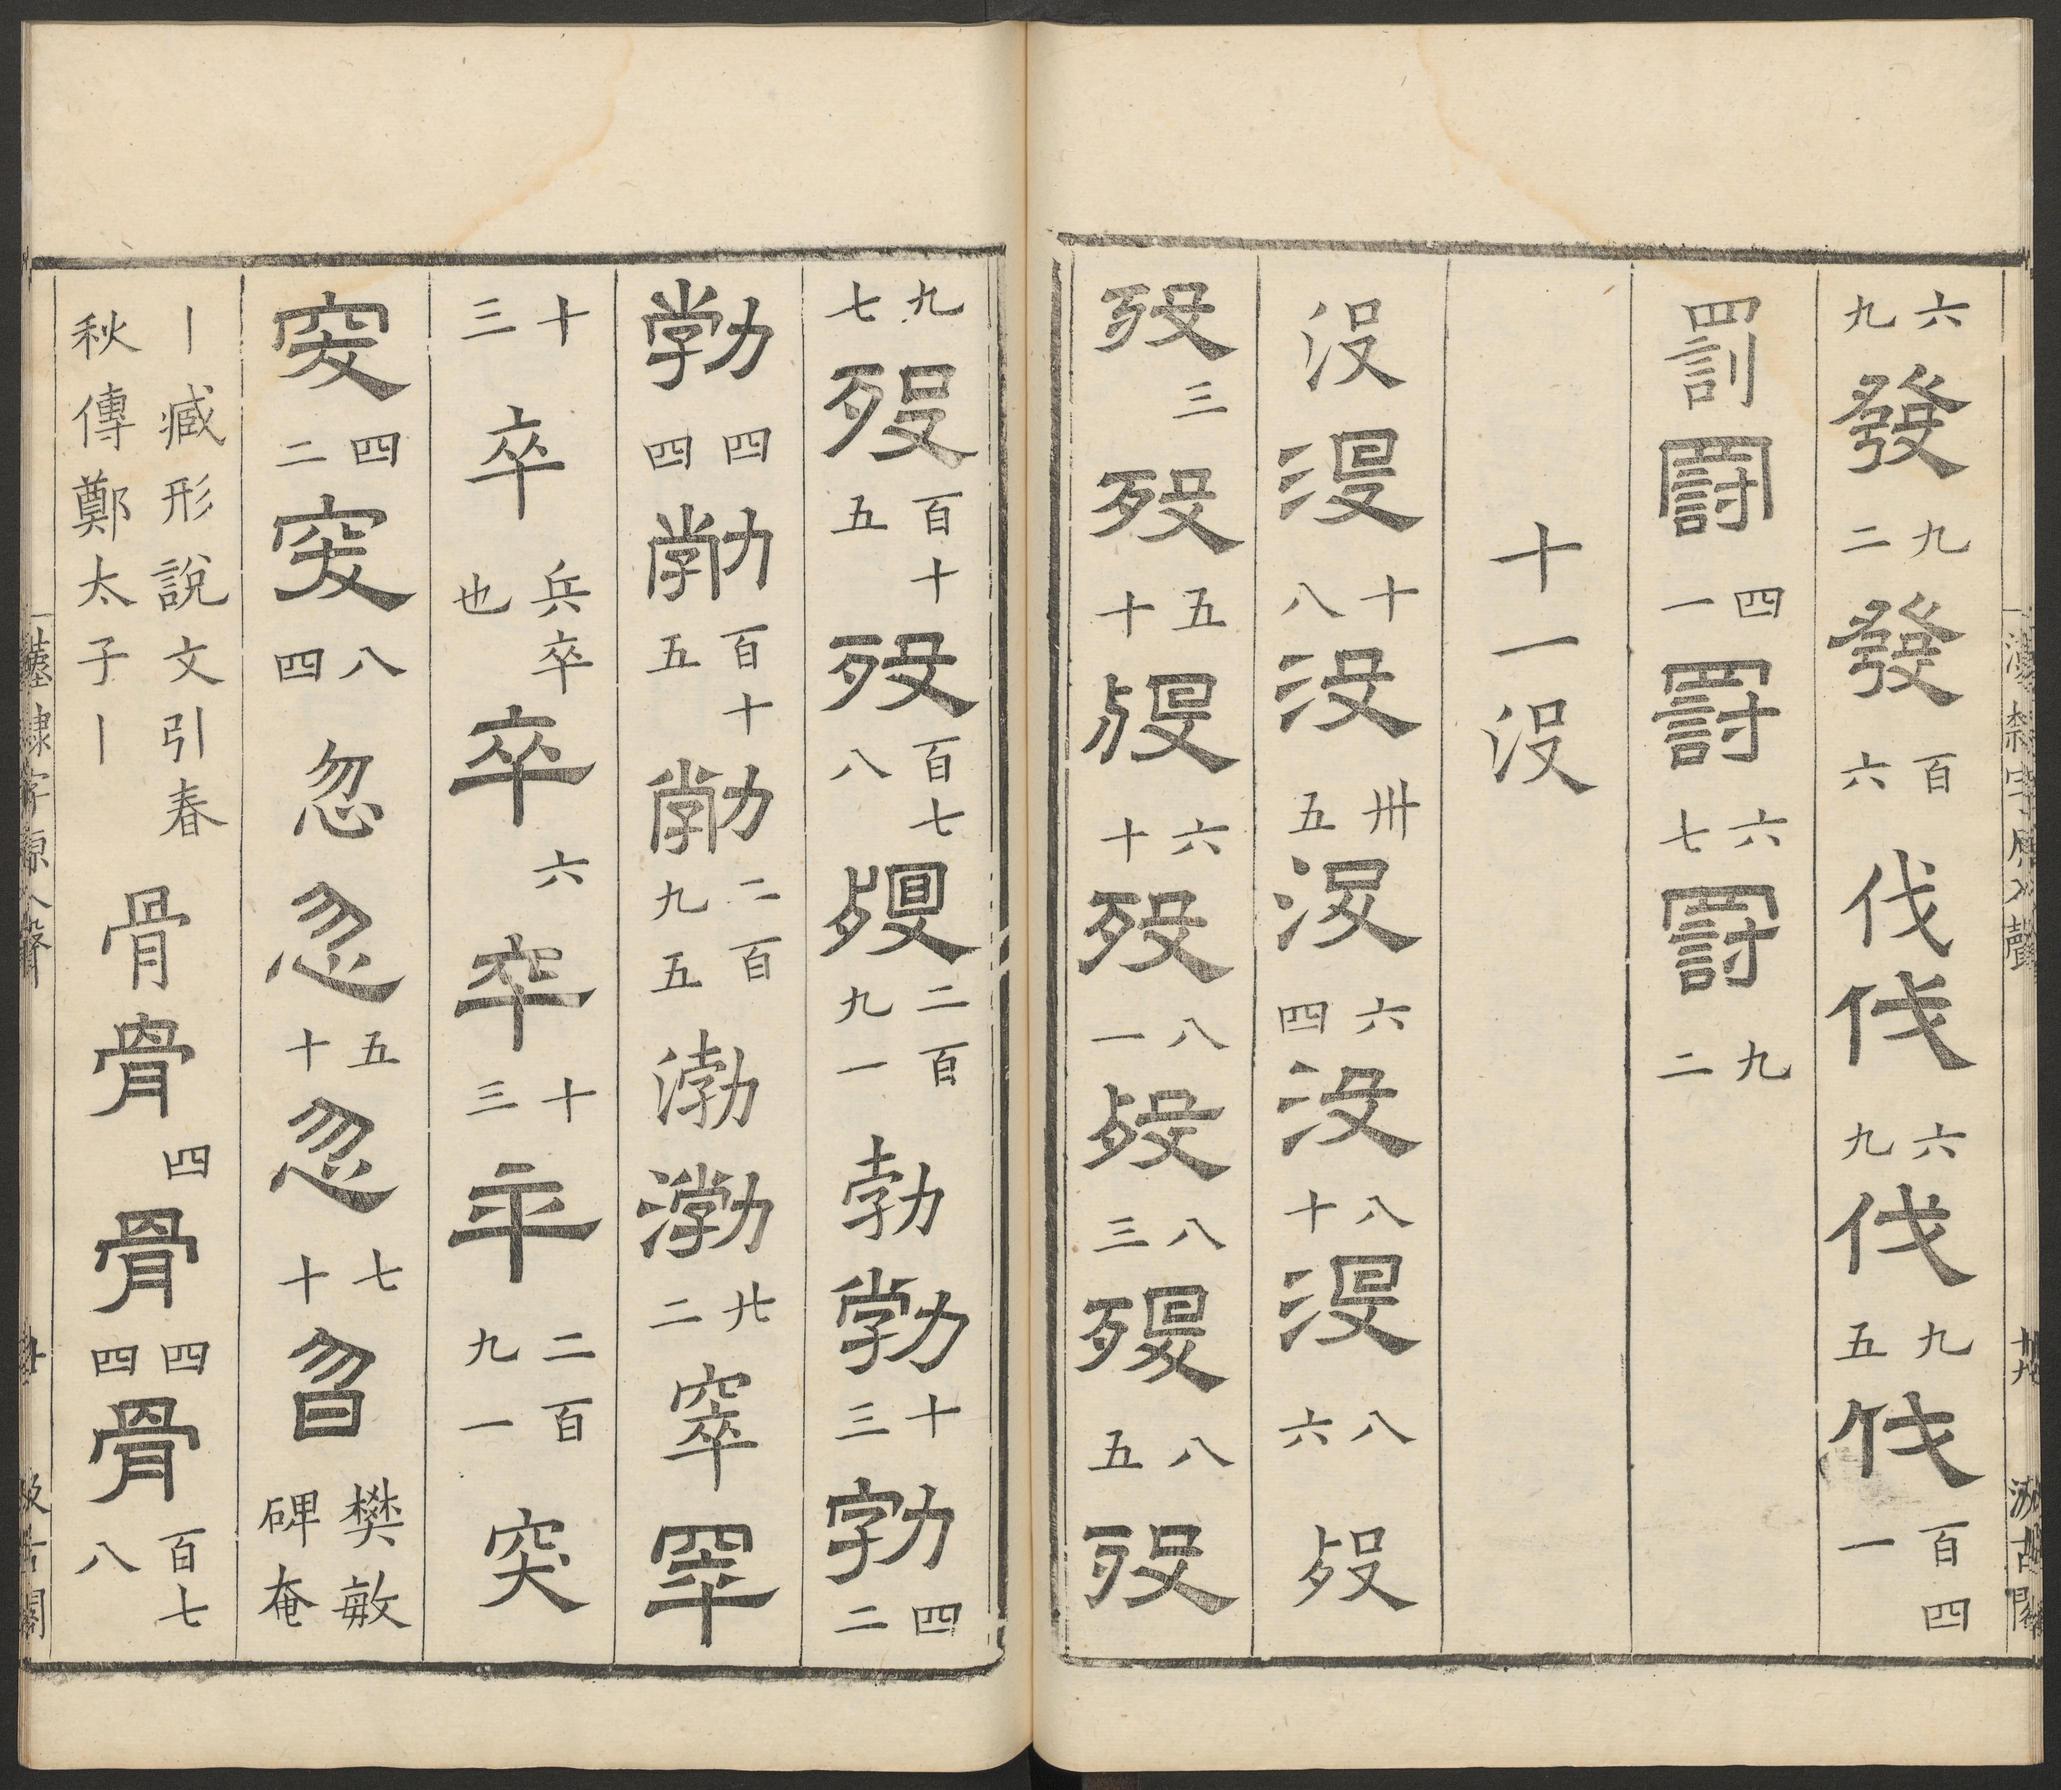 六九發九二發百六伐伐六九伐九五伐百四一
罰罰四一罰六七罰九二
十一没
没没十八没卅五没六四没八十没八六歿
歿三歿五十歿六十歿八一歿八三歿八五歿
九七歿百十五歿百七八歿二百九一勃勃十三勃四二
勃四四勃百十五勃二百九五渤渤廿二窣窣
十三卒兵卒也卒六卒十三卒二百九一突
突四二突八四忽忽五十忽七十曶樊敏碑奄
丨臧形說文引春秋傳鄭太子丨骨骨四骨四四骨百七八
漢隸字原入聲 十九 汲古閣
漢隸字原入聲 汲古閣